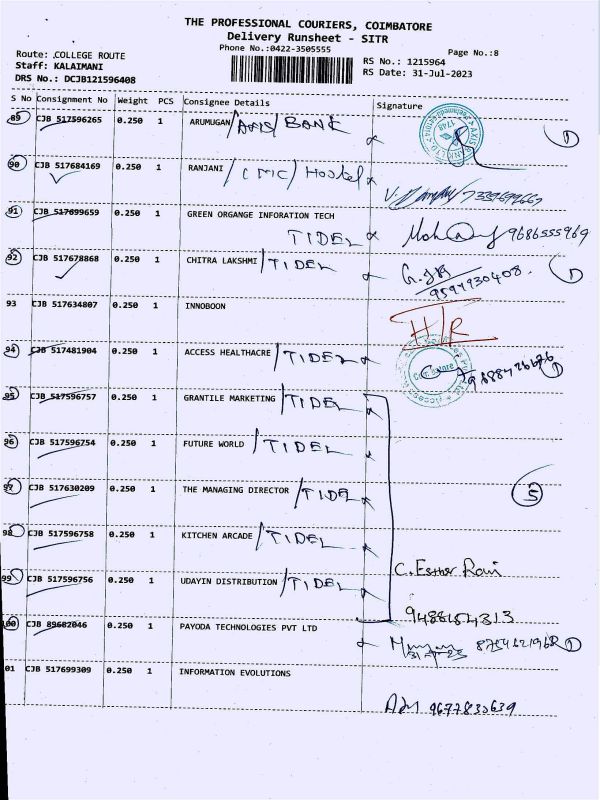 THE PROFESSIONAL COURIERS, COIMBATORE
Delivery Runsheet - SITR
Phone No.:0422-3505555
Page No.:8
Route: .COLLEGE ROUTE
Staff: KALAIMANI
DRS No.: DCJB121596408
RS No.: 1215964
RS Date: 31-Jul-2023
S No Consignment No Weight PCS Consignee Details Signature
89 CJB 517596265 0.250 1 ARUMUGAN / AXIS / BANK
1
90 CJB 517684169 0.250 1 RANJANI / CMC / Hostel
7339699667
91 CJB 517699659 0.250 1 GREEN ORGANGE INFORATION TECH
TIDEL 9686555969
92 CJB 517678868 0.250 1 CHITRA LAKSHMI / TIDEL
9597930408. 1
93 CJB 517634807 0.250 1 INNOBOON
94 CJB 517481904 0.250 1 ACCESS HEALTHACRE / TIDEL
1
95 CJB 517596757 0.250 1 GRANTILE MARKETING / TIDEL
96 CJB 517596754 0.250 1 FUTURE WORLD / TIDEL
97 CJB 517630209 0.250 1 THE MANAGING DIRECTOR / TIDEL
5
98 CJB 517596758 0.250 1 KITCHEN ARCADE / TIDEL
99 CJB 517596756 0.250 1 UDAYIN DISTRIBUTION / TIDEL
C. Esther Rani
9488154313
100 CJB 89682046 0.250 1 PAYODA TECHNOLOGIES PVT LTD
1
01 CJB 517699309 0.250 1 INFORMATION EVOLUTIONS
9677835639